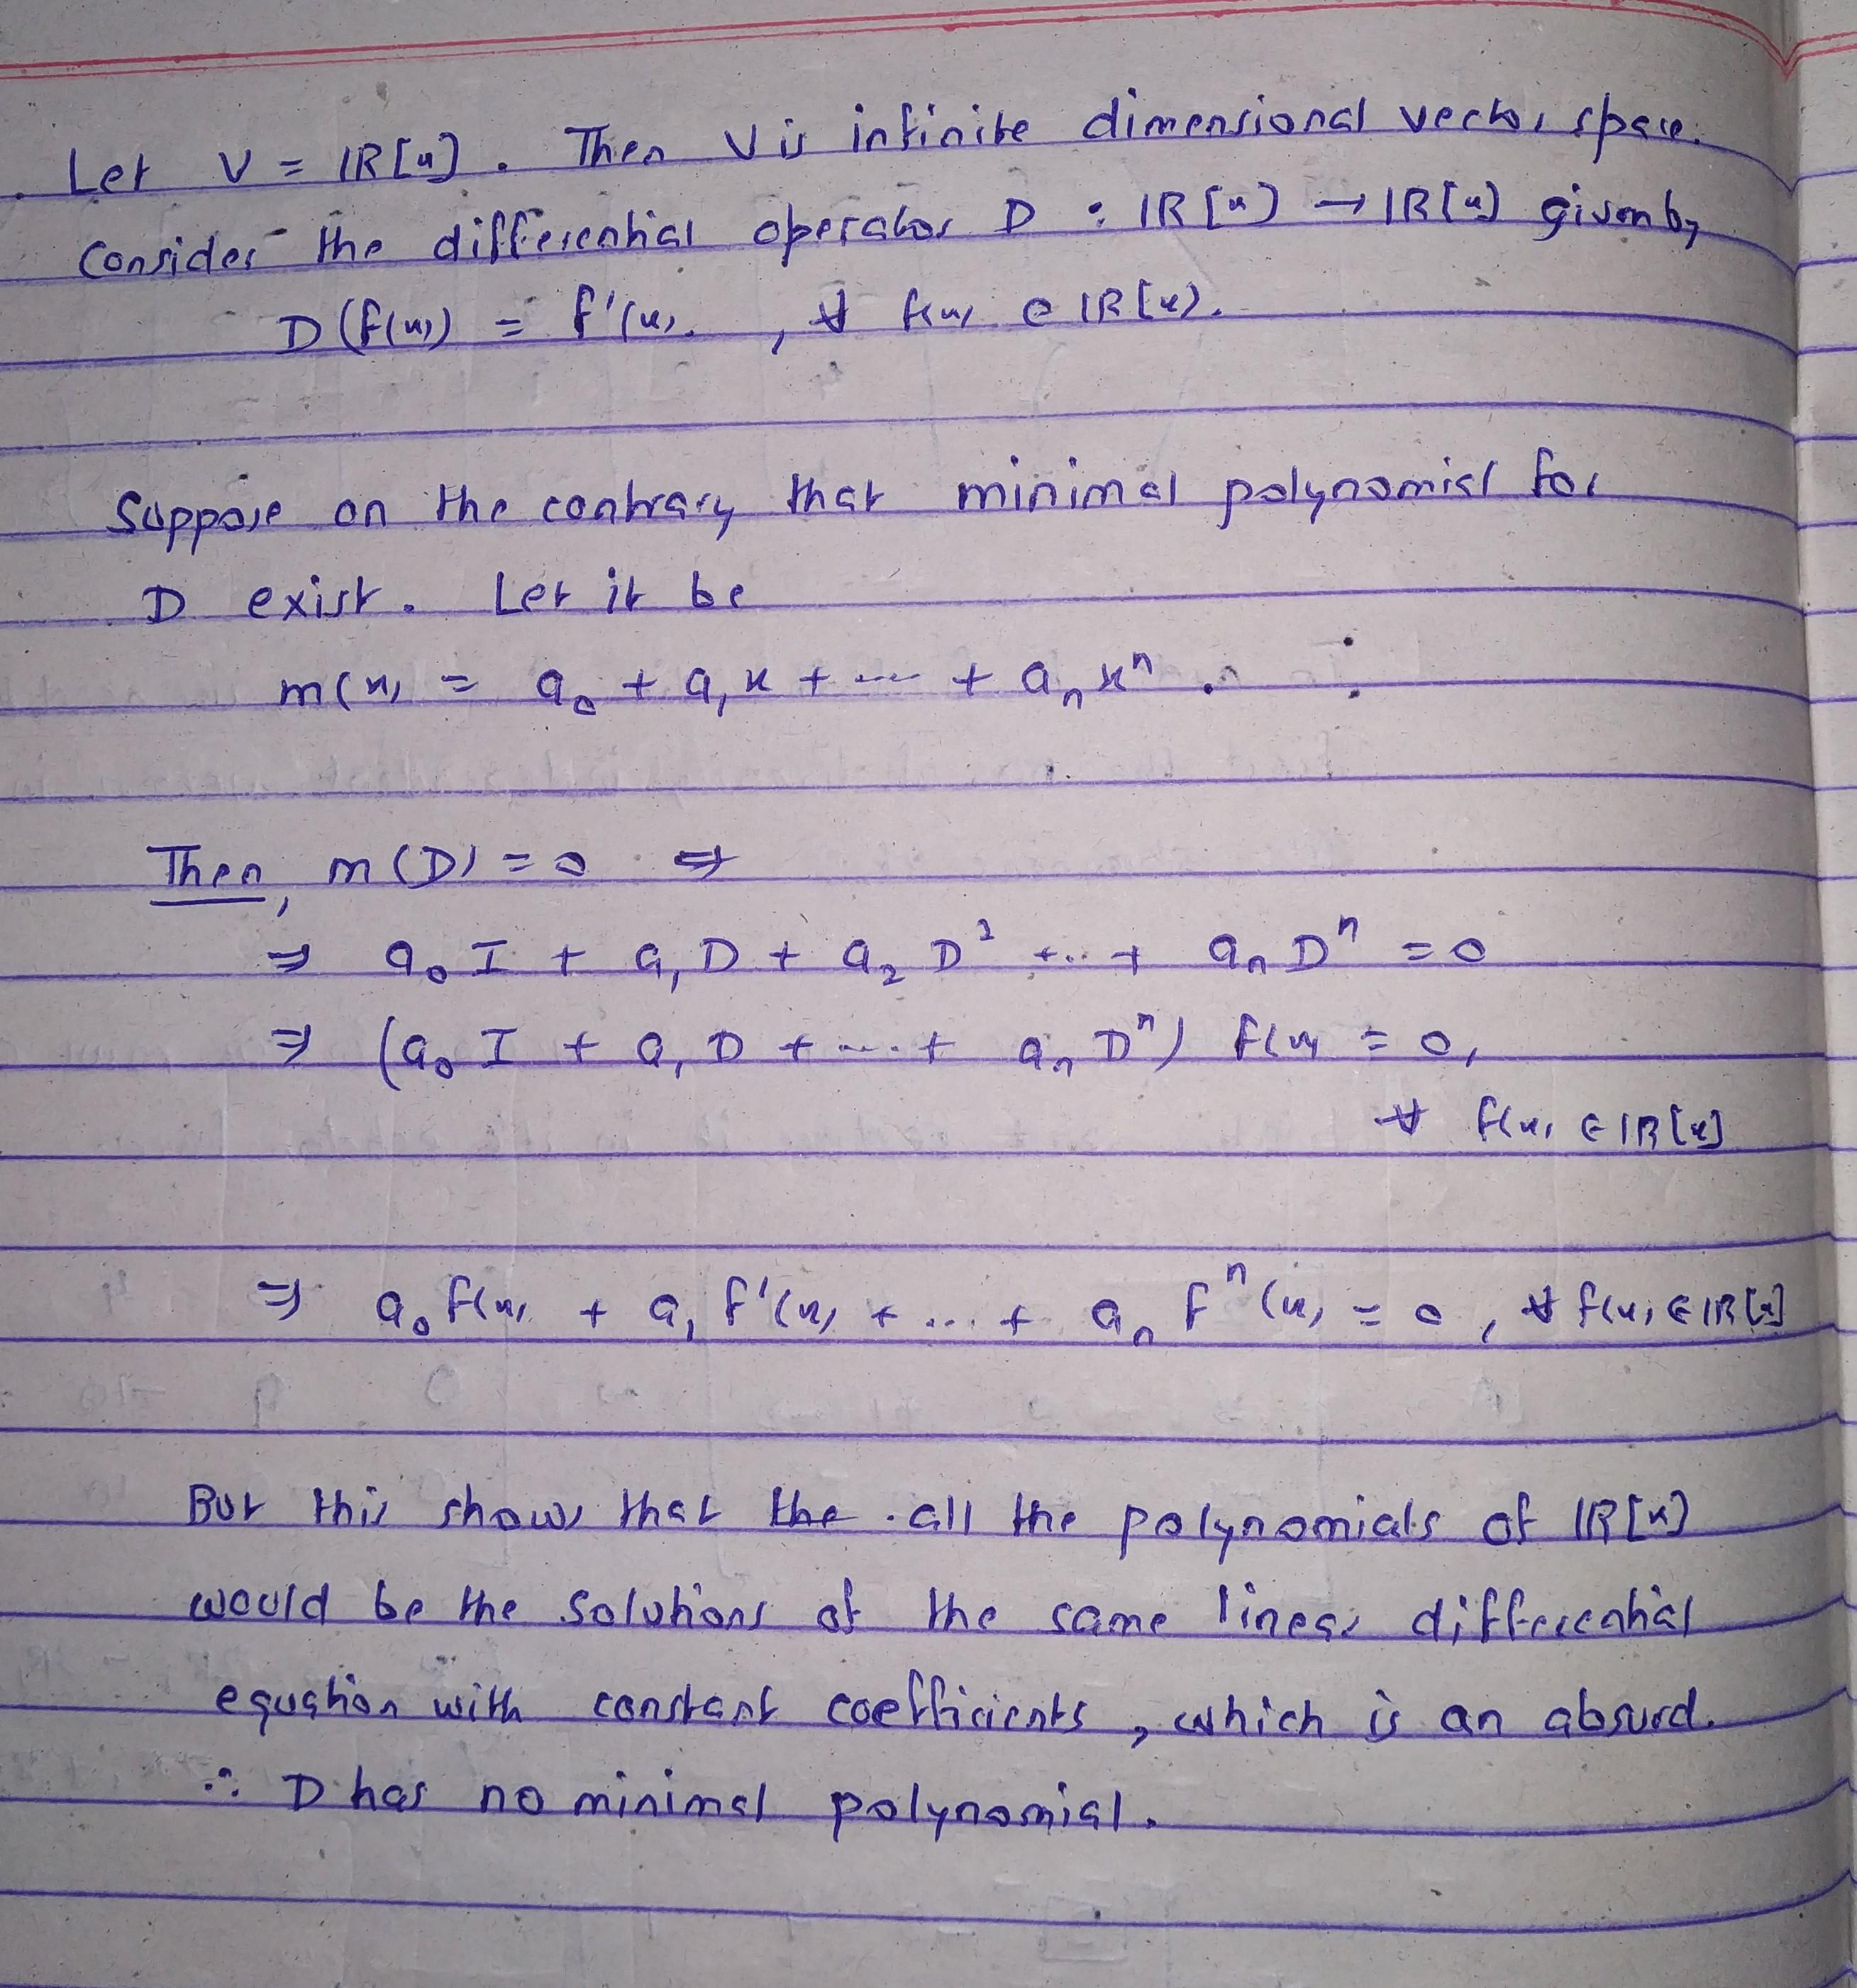 Let V = IR[x]. Then V is infinite dimensional vector space.
Consider the differential operator D : IR[x] → IR[x] given by
D(f(x)) = f'(x). , ∀ f(x) ∈ IR[x].
Suppose on the contrary that minimal polynomial for
D exist. Let it be
m(x) = a₀ + a₁x + --- + aₙxⁿ.
Then, m(D) = 0 ⇒
⇒ a₀I + a₁D + a₂D² +..+ aₙDⁿ = 0
⇒ (a₀I + a₁D + --.+ aₙDⁿ) f(x) = 0,
∀ f(x) ∈ IR[x]
⇒ a₀f(x) + a₁f'(x) + ... + aₙfⁿ(x) = 0, ∀ f(x) ∈ IR[x]
But this shows that the all the polynomials of IR[x]
would be the solutions of the same linear differential
equation with constant coefficients, which is an absurd.
∴ D has no minimal polynomial.